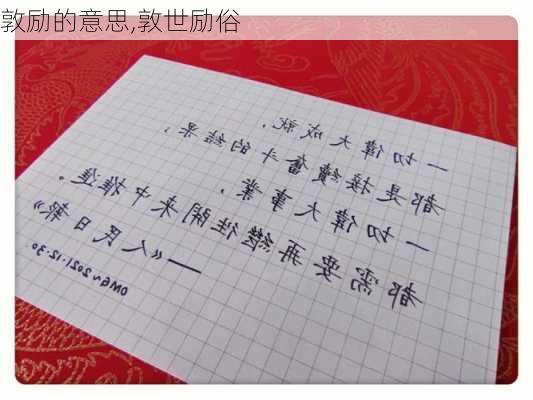 敦励的意思,敦世励俗
一切偉大成就，
都是接續奮斗的結果；
一切偉大事業，
都需要再繼往開来中推進。
——《人民日報》
OMG~2021.12.30.